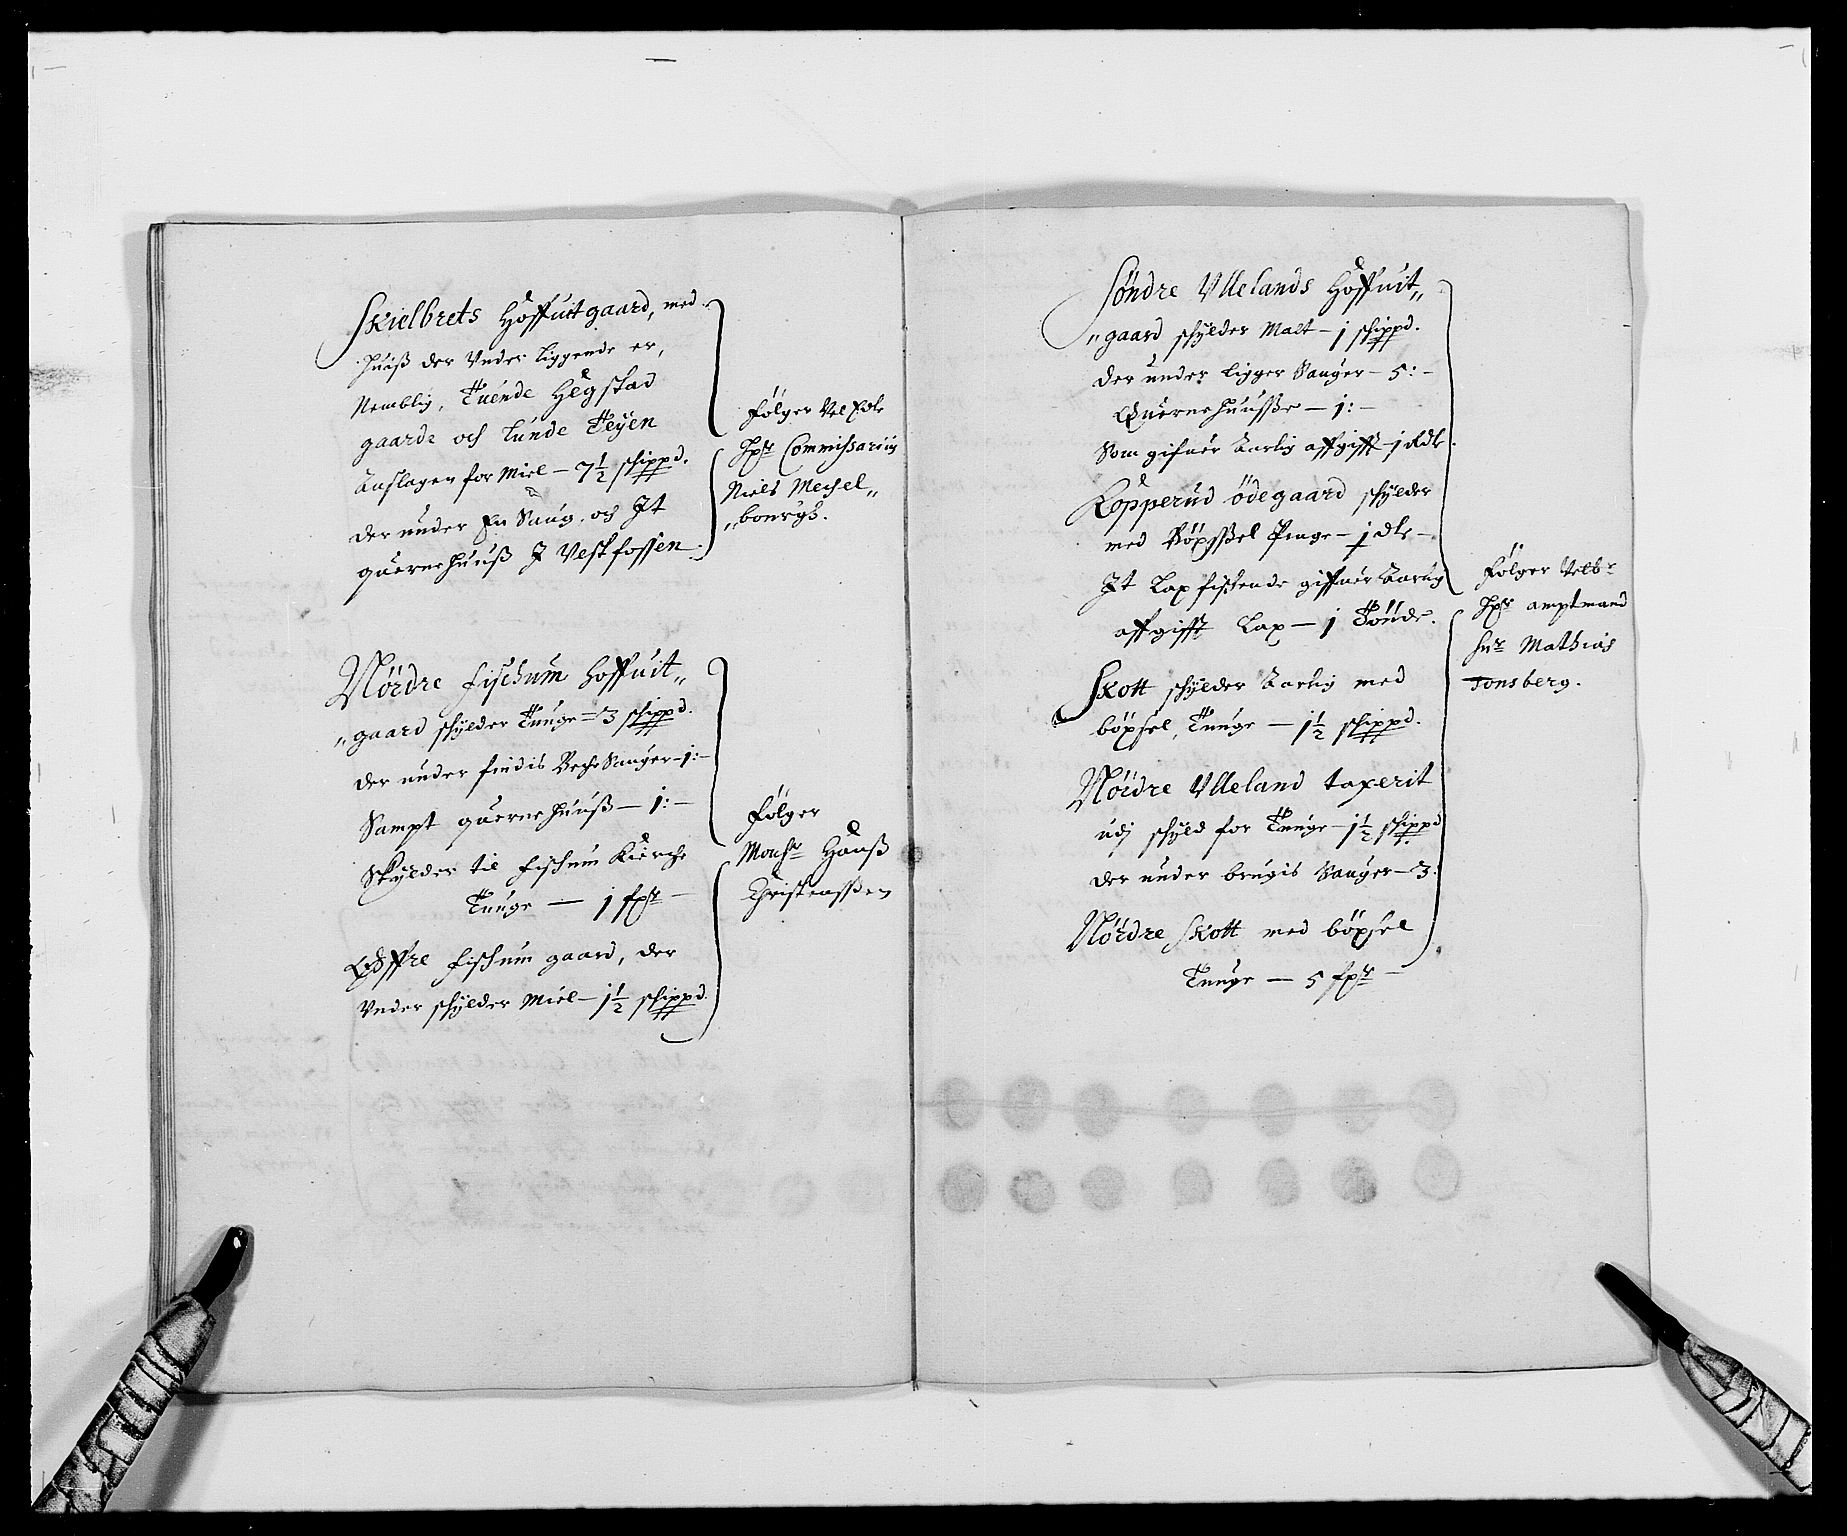 Skielbretz Hoffuitgaard, med
huiß der Under liggende er,
Nemblig, Tuende Hegstad
gaarde och Lunde Teyen
Anslagen for Miel – 7½ schippd.
der under En Saug, och Jt
quernehuuß J Vestfossen
Følger Vel Edle
Hr Commissarius
Niels Mechel„
„bourgs.
Nördre Fischum Hoffuit„
„gaard schylder Tunge – 3 schippd.
der under findis Bech Sauger – 1:–
Sampt quernehuuß – 1:–
Skylder til Fischum Kierche
Tunge – 1 fr
Öffre Fischum gaard, der
Under schylder Miel – 1½ schippd.
Følger
Monsr Hanß
Christenssen
Söndre Ullelands Hoffuit„
„gaard schylder Malt – 1 schippd.
der under ligger Sauger – 5:–
Quernehuusse – 1:–
Som gifuer Aarlig affgifft – 1 Rdlr.
Kopperud ödegaard schylder
med Böxssel Penge – 1 dlr –
Jt Lax fischende giffuer Aarlig
affgifft Lax – 1 Tönde.
Skott schylder Aarlig med
böxsel, Tunge – 1½ schippd.
Nördre Ulleland taxerit
udj schyld for Tunge – 1½ schippd
der under brugis Sauger – 3.
Nördre Skott med böxsel
Tunge – 5 fr –
Følger Velbr
Hr amptmand
Hr Mathias
Tonsberg.